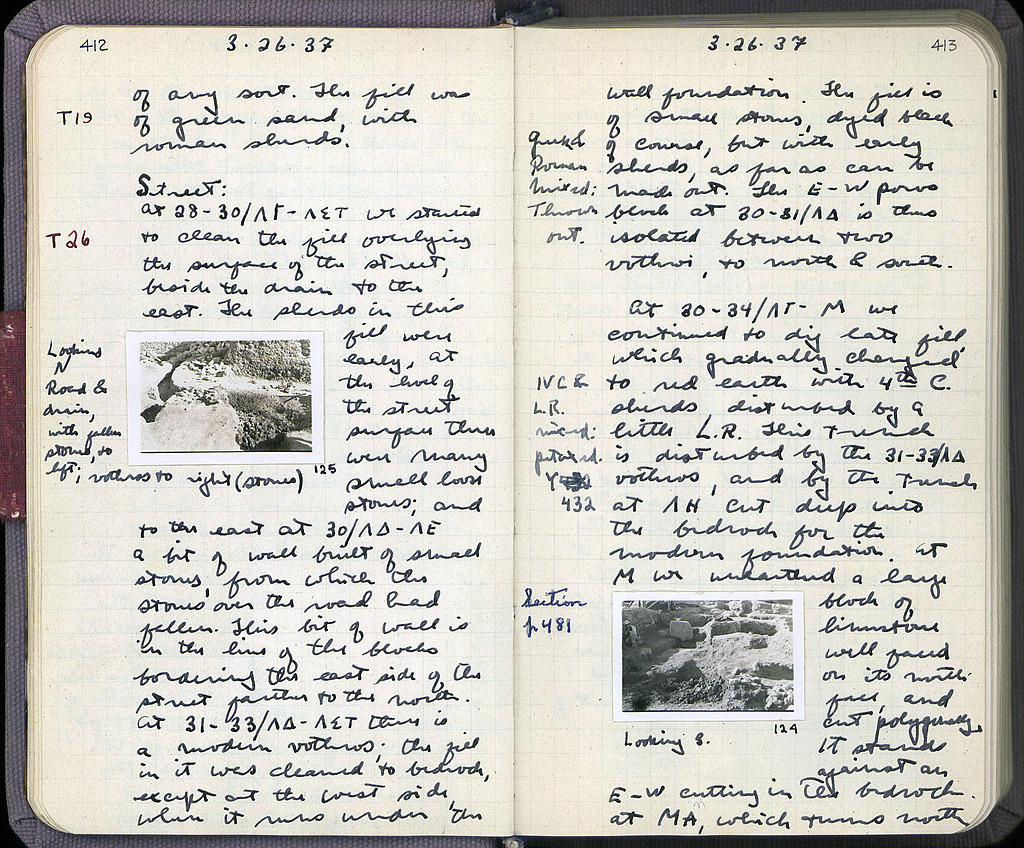 412
3·26·37
of any sort. The fill was
T19
of green sand, with
roman sherds.
Street:
At 28-30/ΛΓ-ΛΣΤ we started
T26
to clean the fill overlying
the surface of the street,
beside the drain to the
east. The sherds in this
fill were
early, at
the level of
the street
surface there
were many
small loose
stones; and
Looking
N
Road &
drain,
with fallen
stones, to
left; vothros to right (stones)
125
to the east at 30/ΛΔ-ΛΕ
a bit of wall built of small
stones, from which the
stones over the road had
fallen. This bit of wall is
in the line of the blocks
bordering the east side of the
street farther to the north.
At 31-33/ΛΔ-ΛΣΤ there is
a modern vothros; the fill
in it was cleaned to bedrock,
except at the west side,
where it runs under the
3·26·37
413
wall foundation. The fill is
of small stones, dyed black
of course, but with early
sherds, as far as can be
made out. The E-W poros
block at 30-31/ΛΔ is thus
isolated between two
vothroi, to north & south.
Greek &
Roman
mixed:
Thrown
out.
At 30-34/ΛΓ-M we
continued to dig late fill
which gradually changed
to red earth with 4th C.
sherds, disturbed by a
little L.R. This trench
is disturbed by the 31-33/ΛΔ
vothros, and by the trench
at ΛΗ cut deep into
the bedrock for the
modern foundation. At
M we unearthed a large
IVC &
L.R.
mixed:
432
Section
p 481
block of
limestone
well faced
on its north
face, and
cut polygonally.
It stands
against an
Looking S.
124
E-W cutting in the bedrock
at MA, which turns north